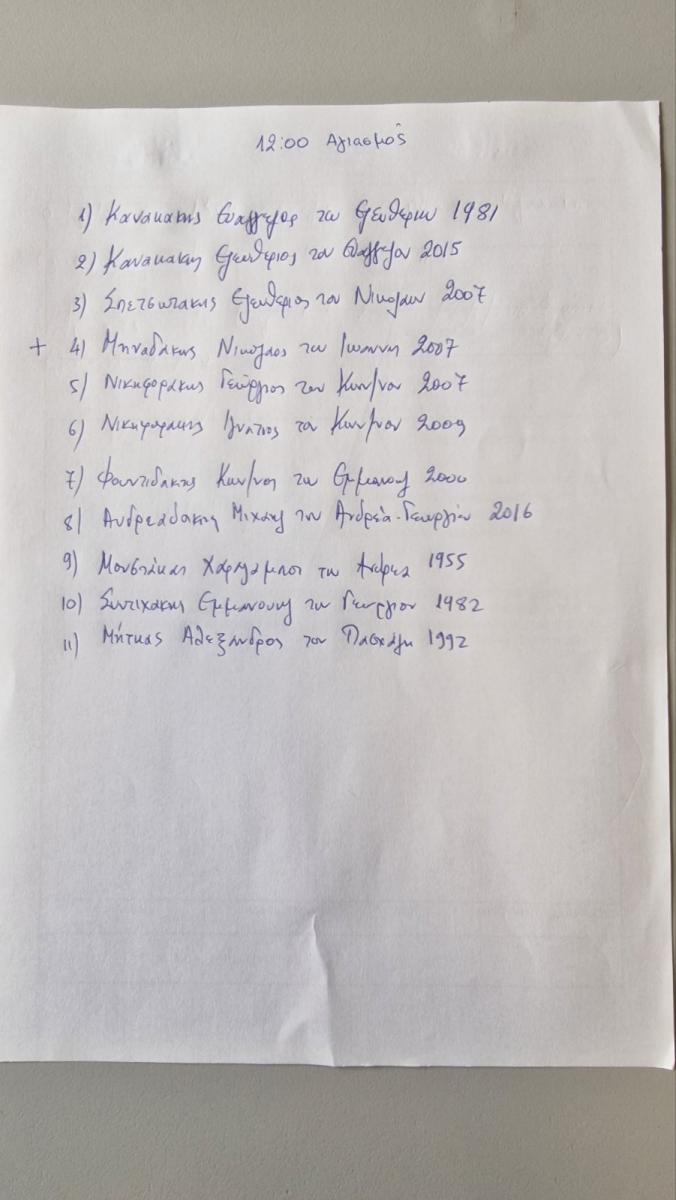 12:00 Αγιασμός
1) Κανακακης Ευάγγελος του Ελευθεριου 1981
2) Κανακακης Ελευθεριος του Ευάγγελου 2015
3) Σπετσωτακης Ελευθεριος του Νικολαου 2007
+ 4) Μηναδάκης Νικολαος του Ιωαννη 2007
5) Νικηφοράκης Γεώργιος του Κων/νου 2007
6) Νικηφορακης Ιγνατιος του Κων/νου 2009
7) Φουντιδάκης Κων/νος του Εμμανουηλ 2000
8) Ανδρεαδακης Μιχαηλ του Ανδρέα-Γεωργίου 2016
9) Μουστάκας Χαραλαμπος του Ανδρεα 1955
10) Συντιχακης Εμμανουηλ του Γεωργιου 1982
11) Μήτκας Αλεξανδρος του Πασχάλη 1992